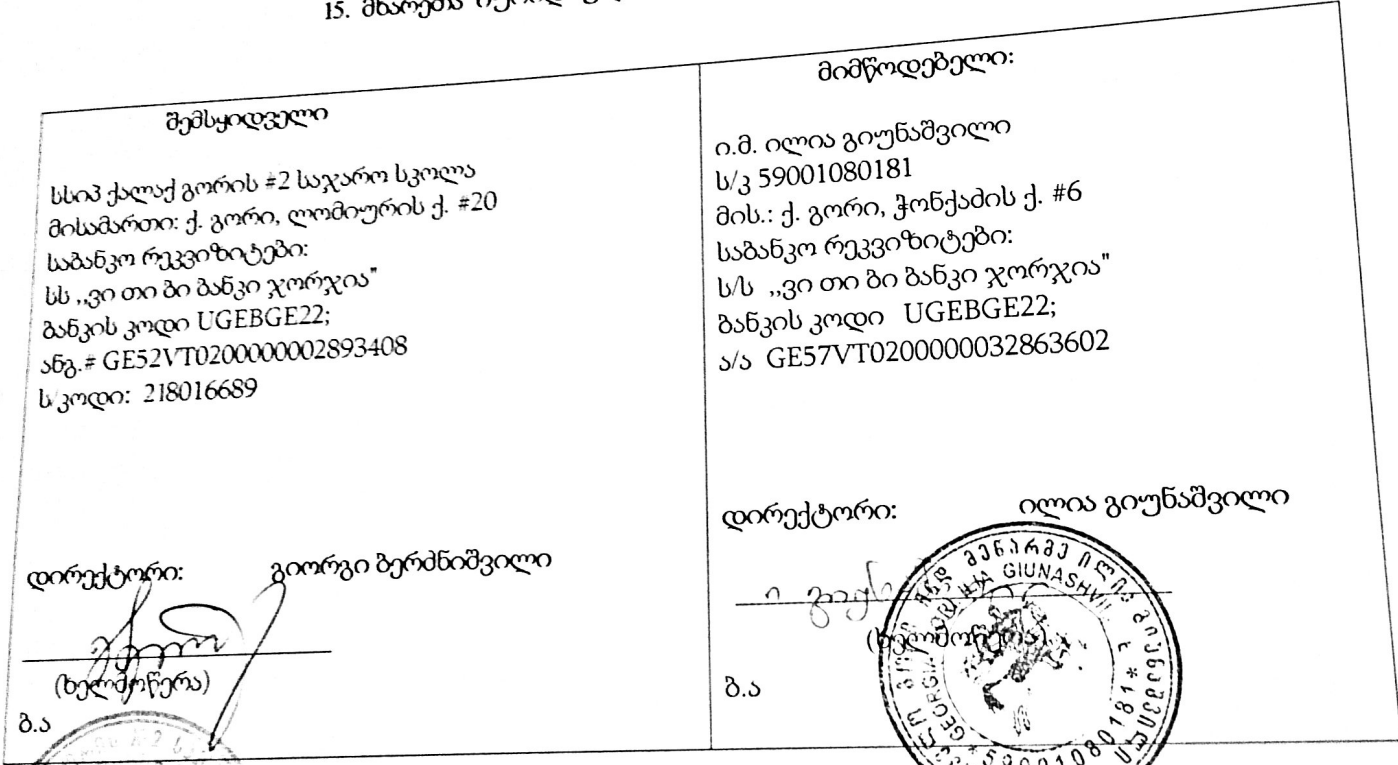 15. მხარეთა
შემსყიდველი
სსიპ ქალაქ გორის #2 საჯარო სკოლა
მისამართი: ქ. გორი, ლომიურის ქ. #20
საბანკო რეკვიზიტები:
სს ,,ვი თი ბი ბანკი ჯორჯია"
ბანკის კოდი UGEBGE22;
ანგ.# GE52VT0200000002893408
ს/კოდი: 218016689
დირექტორი: გიორგი ბერძნიშვილი
(ხელმოწერა)
ბ.ა
მიმწოდებელი:
ი.მ. ილია გიუნაშვილი
ს/კ 59001080181
მის.: ქ. გორი, ჭონქაძის ქ. #6
საბანკო რეკვიზიტები:
ს/ს ,,ვი თი ბი ბანკი ჯორჯია"
ბანკის კოდი UGEBGE22;
ა/ა GE57VT0200000032863602
დირექტორი: ილია გიუნაშვილი
(ხელმოწერა)
ბ.ა
მენარმე ილია გიუნაშვილი
GIUNASHVILI
*59001080181*